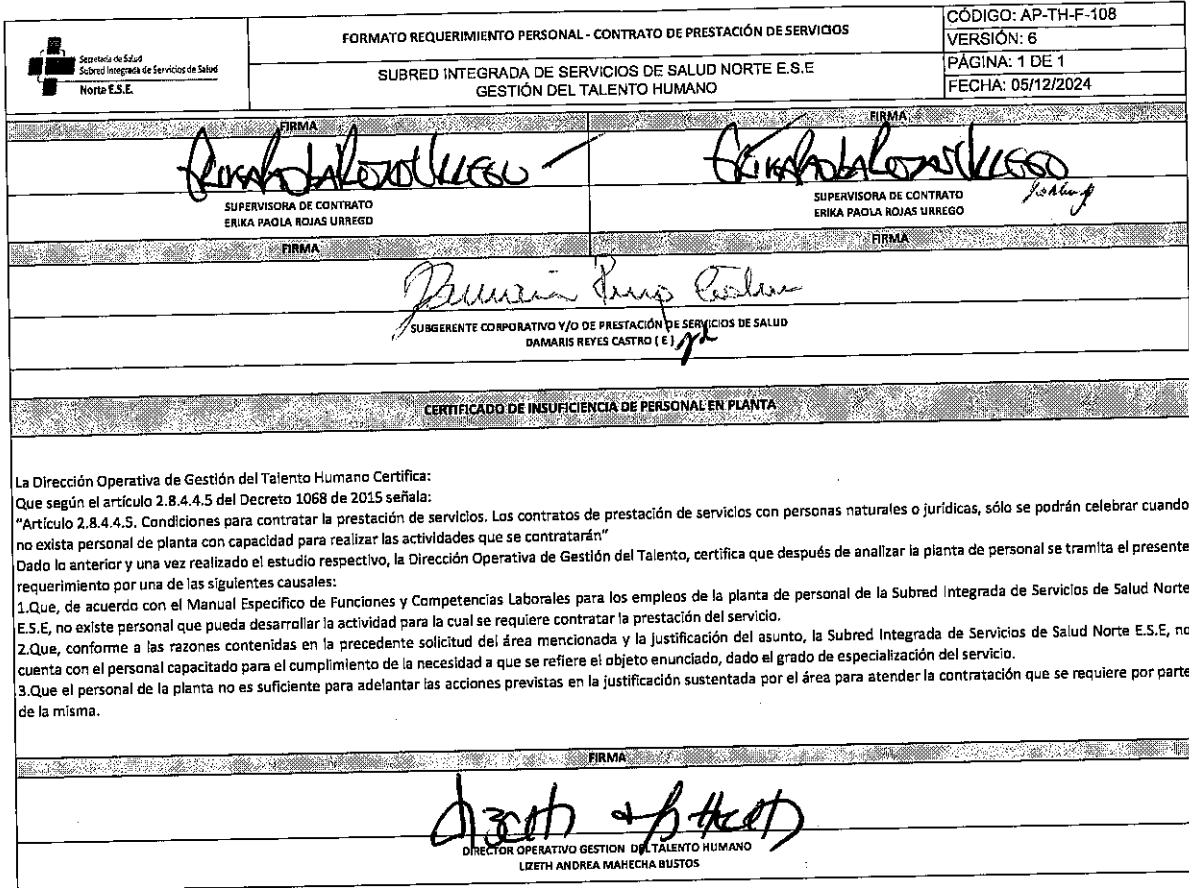 Secretaría de Salud
Subred Integrada de Servicios de Salud
Norte E.S.E.
FORMATO REQUERIMIENTO PERSONAL - CONTRATO DE PRESTACIÓN DE SERVICIOS
SUBRED INTEGRADA DE SERVICIOS DE SALUD NORTE E.S.E
GESTIÓN DEL TALENTO HUMANO
CÓDIGO: AP-TH-F-108
VERSIÓN: 6
PÁGINA: 1 DE 1
FECHA: 05/12/2024
FIRMA
FIRMA
SUPERVISORA DE CONTRATO
ERIKA PAOLA ROJAS URREGO
SUPERVISORA DE CONTRATO
ERIKA PAOLA ROJAS URREGO
FIRMA
FIRMA
SUBGERENTE CORPORATIVO Y/O DE PRESTACIÓN DE SERVICIOS DE SALUD
DAMARIS REYES CASTRO ( E )
CERTIFICADO DE INSUFICIENCIA DE PERSONAL EN PLANTA
La Dirección Operativa de Gestión del Talento Humano Certifica:
Que según el artículo 2.8.4.4.5 del Decreto 1068 de 2015 señala:
"Artículo 2.8.4.4.5. Condiciones para contratar la prestación de servicios. Los contratos de prestación de servicios con personas naturales o jurídicas, sólo se podrán celebrar cuando
no exista personal de planta con capacidad para realizar las actividades que se contratarán"
Dado lo anterior y una vez realizado el estudio respectivo, la Dirección Operativa de Gestión del Talento, certifica que después de analizar la planta de personal se tramita el presente
requerimiento por una de las siguientes causales:
1.Que, de acuerdo con el Manual Especifico de Funciones y Competencias Laborales para los empleos de la planta de personal de la Subred Integrada de Servicios de Salud Norte
E.S.E, no existe personal que pueda desarrollar la actividad para la cual se requiere contratar la prestación del servicio.
2.Que, conforme a las razones contenidas en la precedente solicitud del área mencionada y la justificación del asunto, la Subred Integrada de Servicios de Salud Norte E.S.E, no
cuenta con el personal capacitado para el cumplimiento de la necesidad a que se refiere el objeto enunciado, dado el grado de especialización del servicio.
3.Que el personal de la planta no es suficiente para adelantar las acciones previstas en la justificación sustentada por el área para atender la contratación que se requiere por parte
de la misma.
FIRMA
DIRECTOR OPERATIVO GESTION DEL TALENTO HUMANO
LIZETH ANDREA MAHECHA BUSTOS